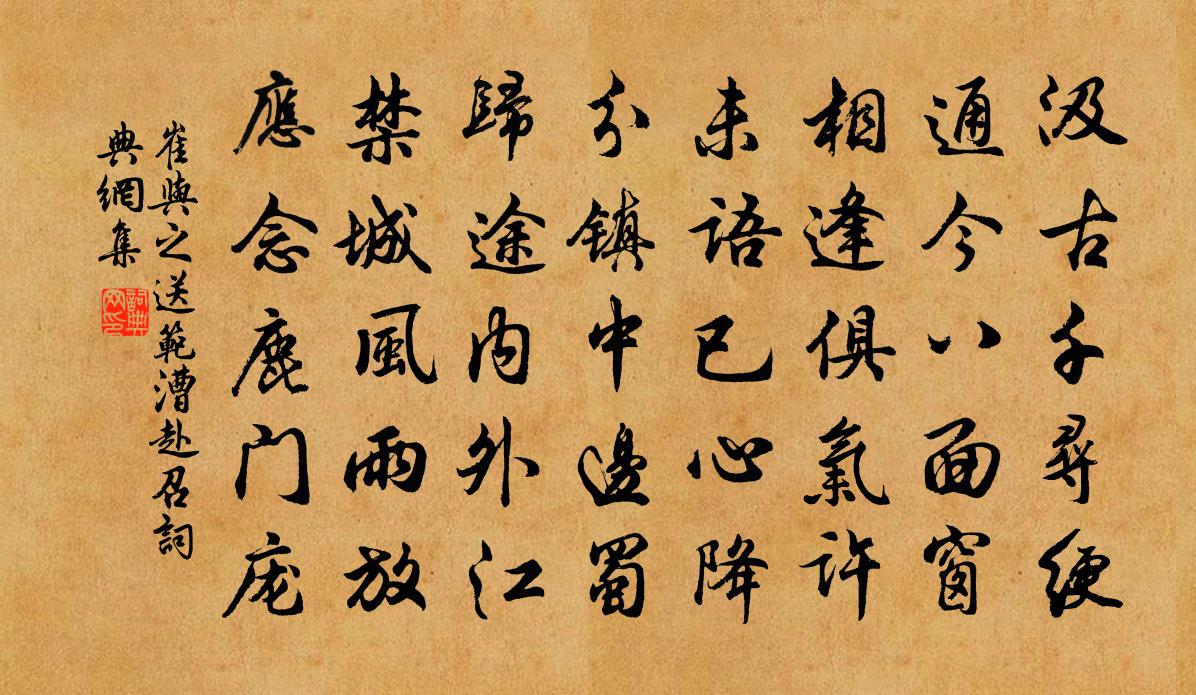 汲古千尋綆
通今八面窗
相逢俱氣許
未語已心降
分鎮中邊蜀
歸途内外江
禁城風雨放
應念鹿門庞
崔與之送範漕赴召詞
典網集
詞典網印